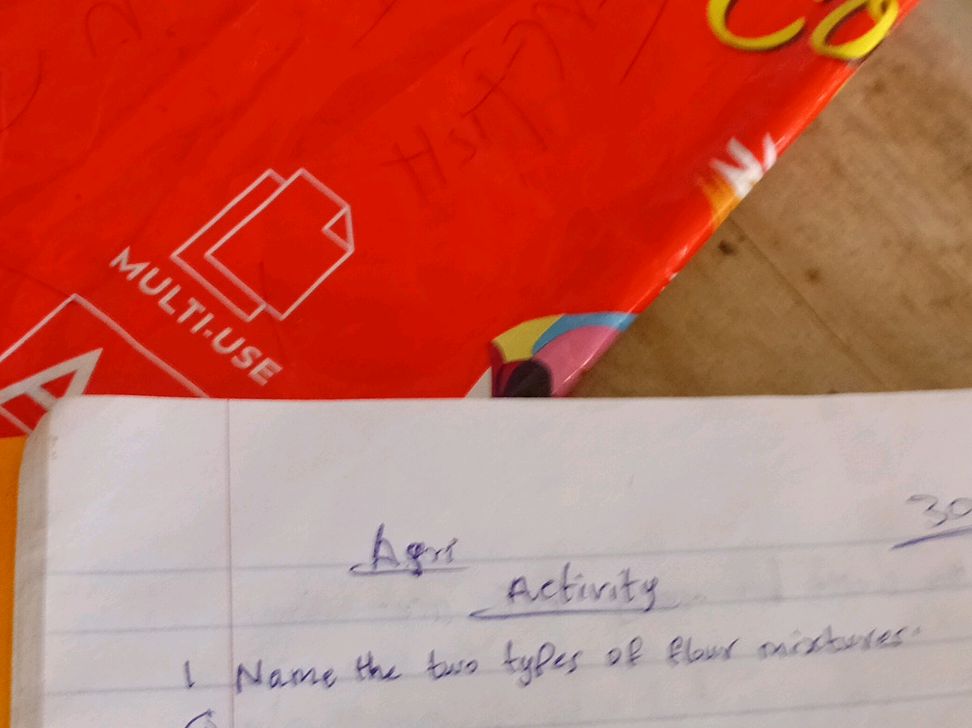 MULTI-USE
A
30
Agri
Activity
1 Name the two types of flour mixtures.